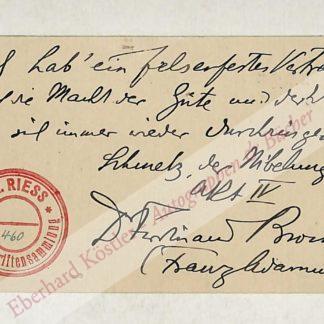 hab' ein felsenfestes Vertrau
die Macht der Güte und
sich immer wieder durchringen
Schmelz, der Nibelunge
Akt IV
Dr Ferdinand Bron
(Franz Adamus
RIESS
460
riftensammlung
Eberhard Köstler Autographen & Bücher